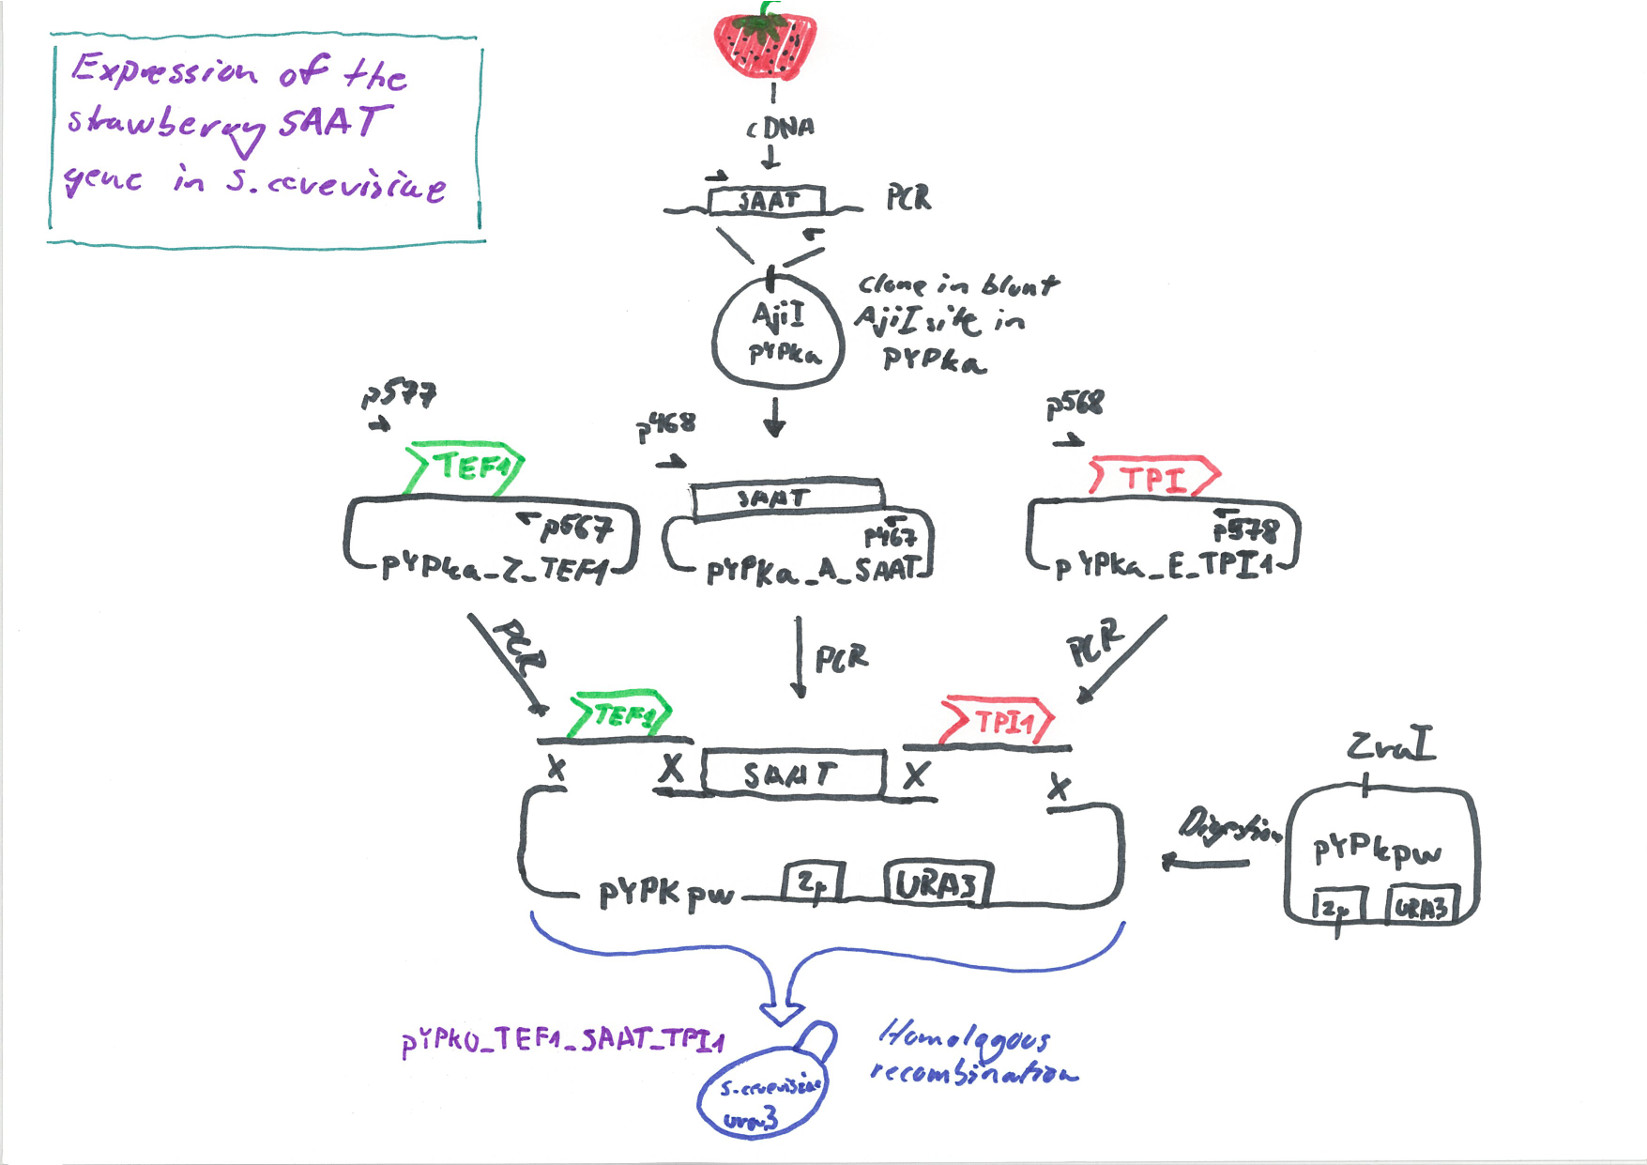 Expression of the
strawberry SAAT
gene in S. cerevisiae
cDNA
SAAT
PCR
AjiI
pYPka
Clone in blunt
AjiI site in
pYPka
p577
TEF1
p567
pYPka_Z_TEF1
p468
SAAT
p467
pYPka_A_SAAT
p568
TPI
p578
pYPka_E_TPI1
PCR
PCR
PCR
TEF1
TPI1
X
X
SAAT
X
X
pYPKpw
2µ
URA3
Digestion
ZraI
pYPkpw
2µ
URA3
pYPK0_TEF1_SAAT_TPI1
S. cerevisiae
ura3
Homologous
recombination